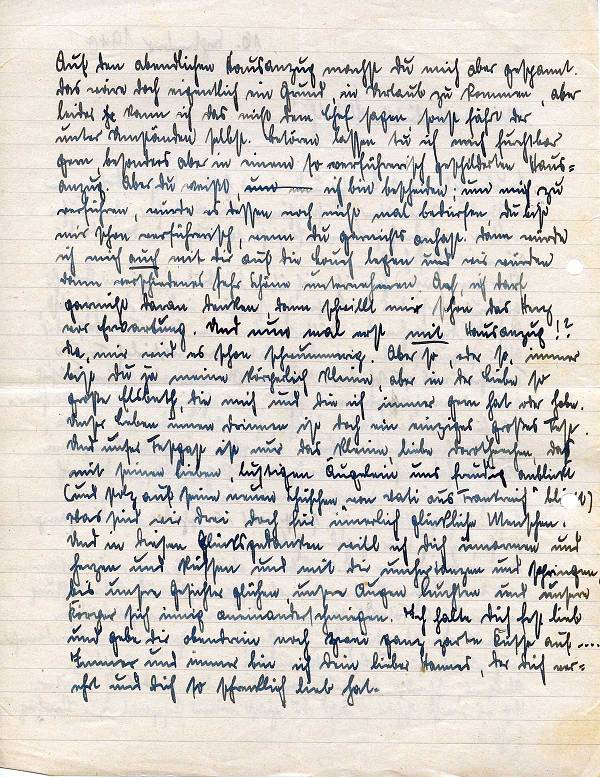 Auf den abendlichen Hausanzug machst du mich aber gespannt.
Das wäre doch eigentlich ein Grund in Urlaub zu kommen, aber
leider kann ich das nicht dem Chef sagen sonst fährt der
unter Umständen selbst. Betören lassen tu ich mich furchtbar
gern, besonders aber in einem so verführerisch geschilderten Haus=
anzug. Aber du weißt, und ich bin bescheiden; um mich zu
verführen, würde es dessen noch nicht mal bedürfen. Du bist
mir schon verführerisch, wenn du garnichts anhast. Dann würde
ich mich auch mit dir auf die Couch legen und wir würden
dann verschiedenes sehr Schöne unternehmen. Ach, ich darf
garnicht daran denken, dann schwillt mir schon das Herz
vor Erwartung. Und nun mal erst mit Hausanzug!?
da, mir wird es schon schummerig. Aber so, oder so, immer
bist du ja meine körperlich kleine, aber in der Liebe so
große Elsbeth, die mich und die ich immer gern hat oder habe.
Unser Lieben innen drinnen ist doch ein einziges großes Fest.
Und unser Festgast ist nur das kleine liebe Dorthchen, das
mit seinen lieben, lustigen Äugelein uns freudig anblickt
(und stolz auf seine neuen Schühchen von Vati aus "Frankreich" blickt)
Was sind wir drei doch für innerlich glückliche Menschen.
Und in diesen Glücksgedanken will ich dich umarmen und
herzen und küssen und mit dir umhertanzen und springen,
bis unsere Gesichter glühen unsere Augen leuchten und unsere
Körper sich innig aneinanderschmiegen. Ich halte dich fest lieb
und gebe dir obendrein noch zwei ganz zarte Küsse auf....
Immer und immer bin ich dein lieber Hannes, der dich ver=
ehrt und dich so schrecklich lieb hat.